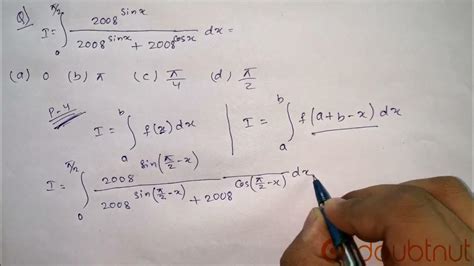 Q) I = ∫₀^{π/2} 2008^{sin x} / (2008^{sin x} + 2008^{cos x}) dx =
(a) 0 (b) π (c) π/4 (d) π/2
P-4 I = ∫ₐᵇ f(x) dx | I = ∫ₐᵇ f(a+b-x) dx
I = ∫₀^{π/2} 2008^{sin(π/2 - x)} / (2008^{sin(π/2 - x)} + 2008^{cos(π/2 - x)}) dx
doubtnut